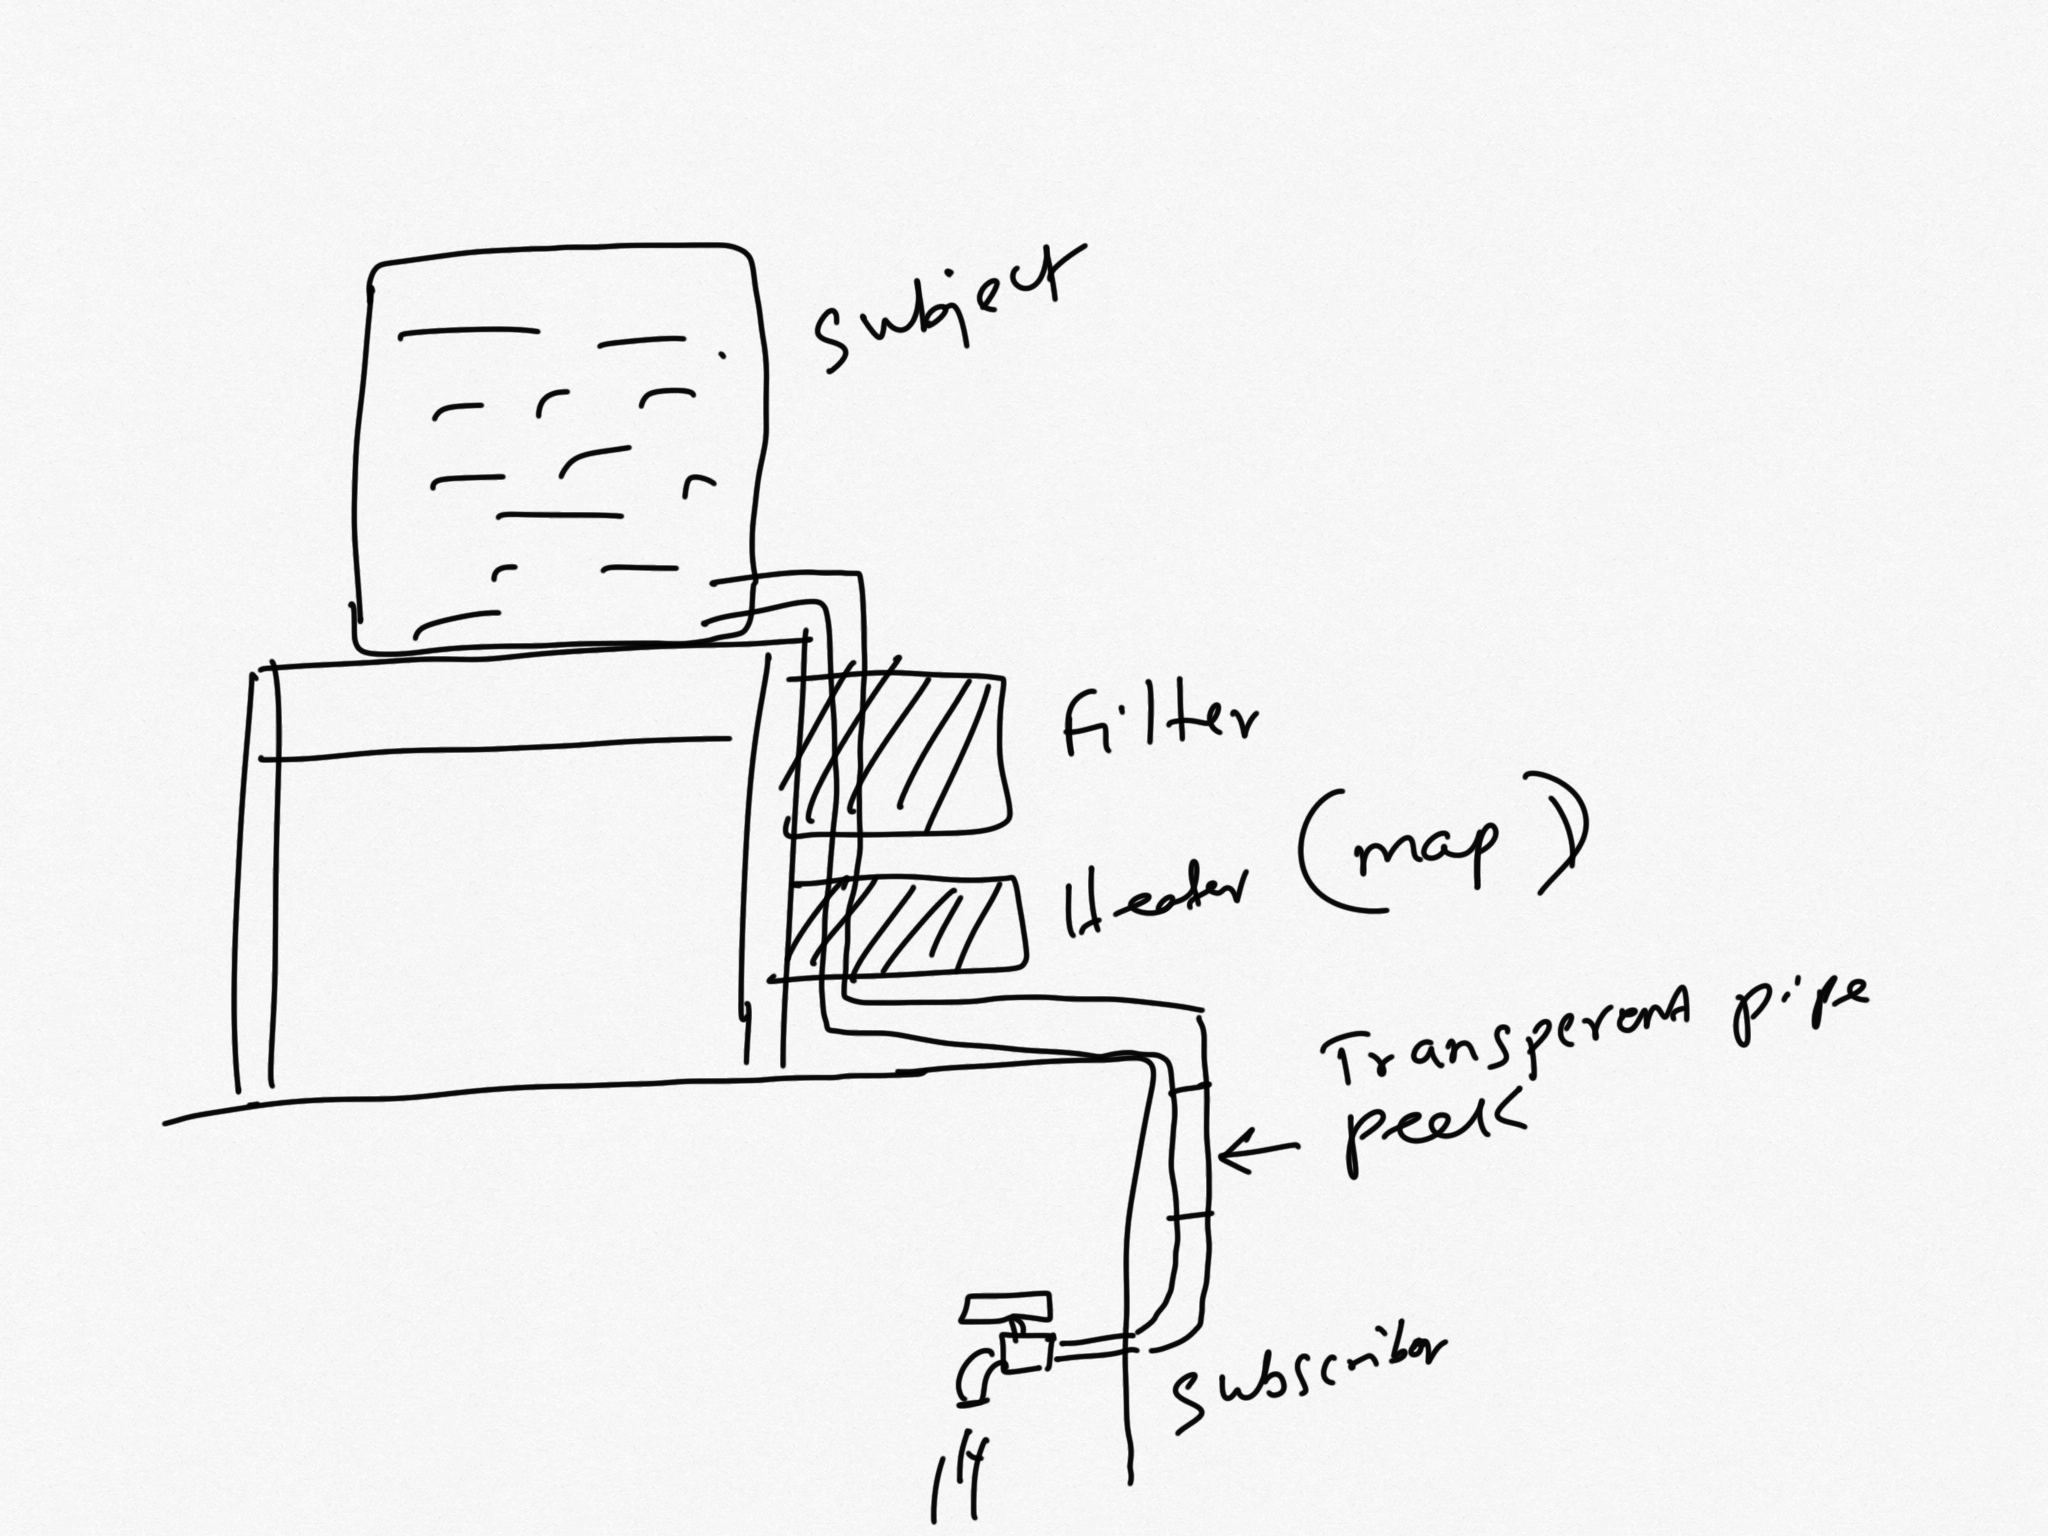 Subject
Filter
(map)
Heater
Transperent pipe
peek
subscribor